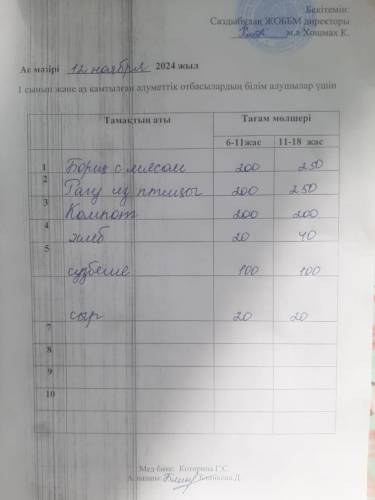 Бекітемін:
Саздыбұлақ ЖОББМ директоры
м.а Хошмах К.
Ас мәзірі 12 ноября 2024 жыл
1 сынып және аз қамтылған әлуметтік отбасылардың білім алушылар үшін
Тамақтың аты Тағам мөлшері
6-11жас 11-18 жас
1 Борщ с мясом 200 250
2 Рагу из птицы 200 250
3 Компот 200 200
4 хлеб 20 40
5 сүзбеше 100 100
сыр 20 20
7
8
9
10
Мед бике: Которина Г.С.
Аспазшы: Д